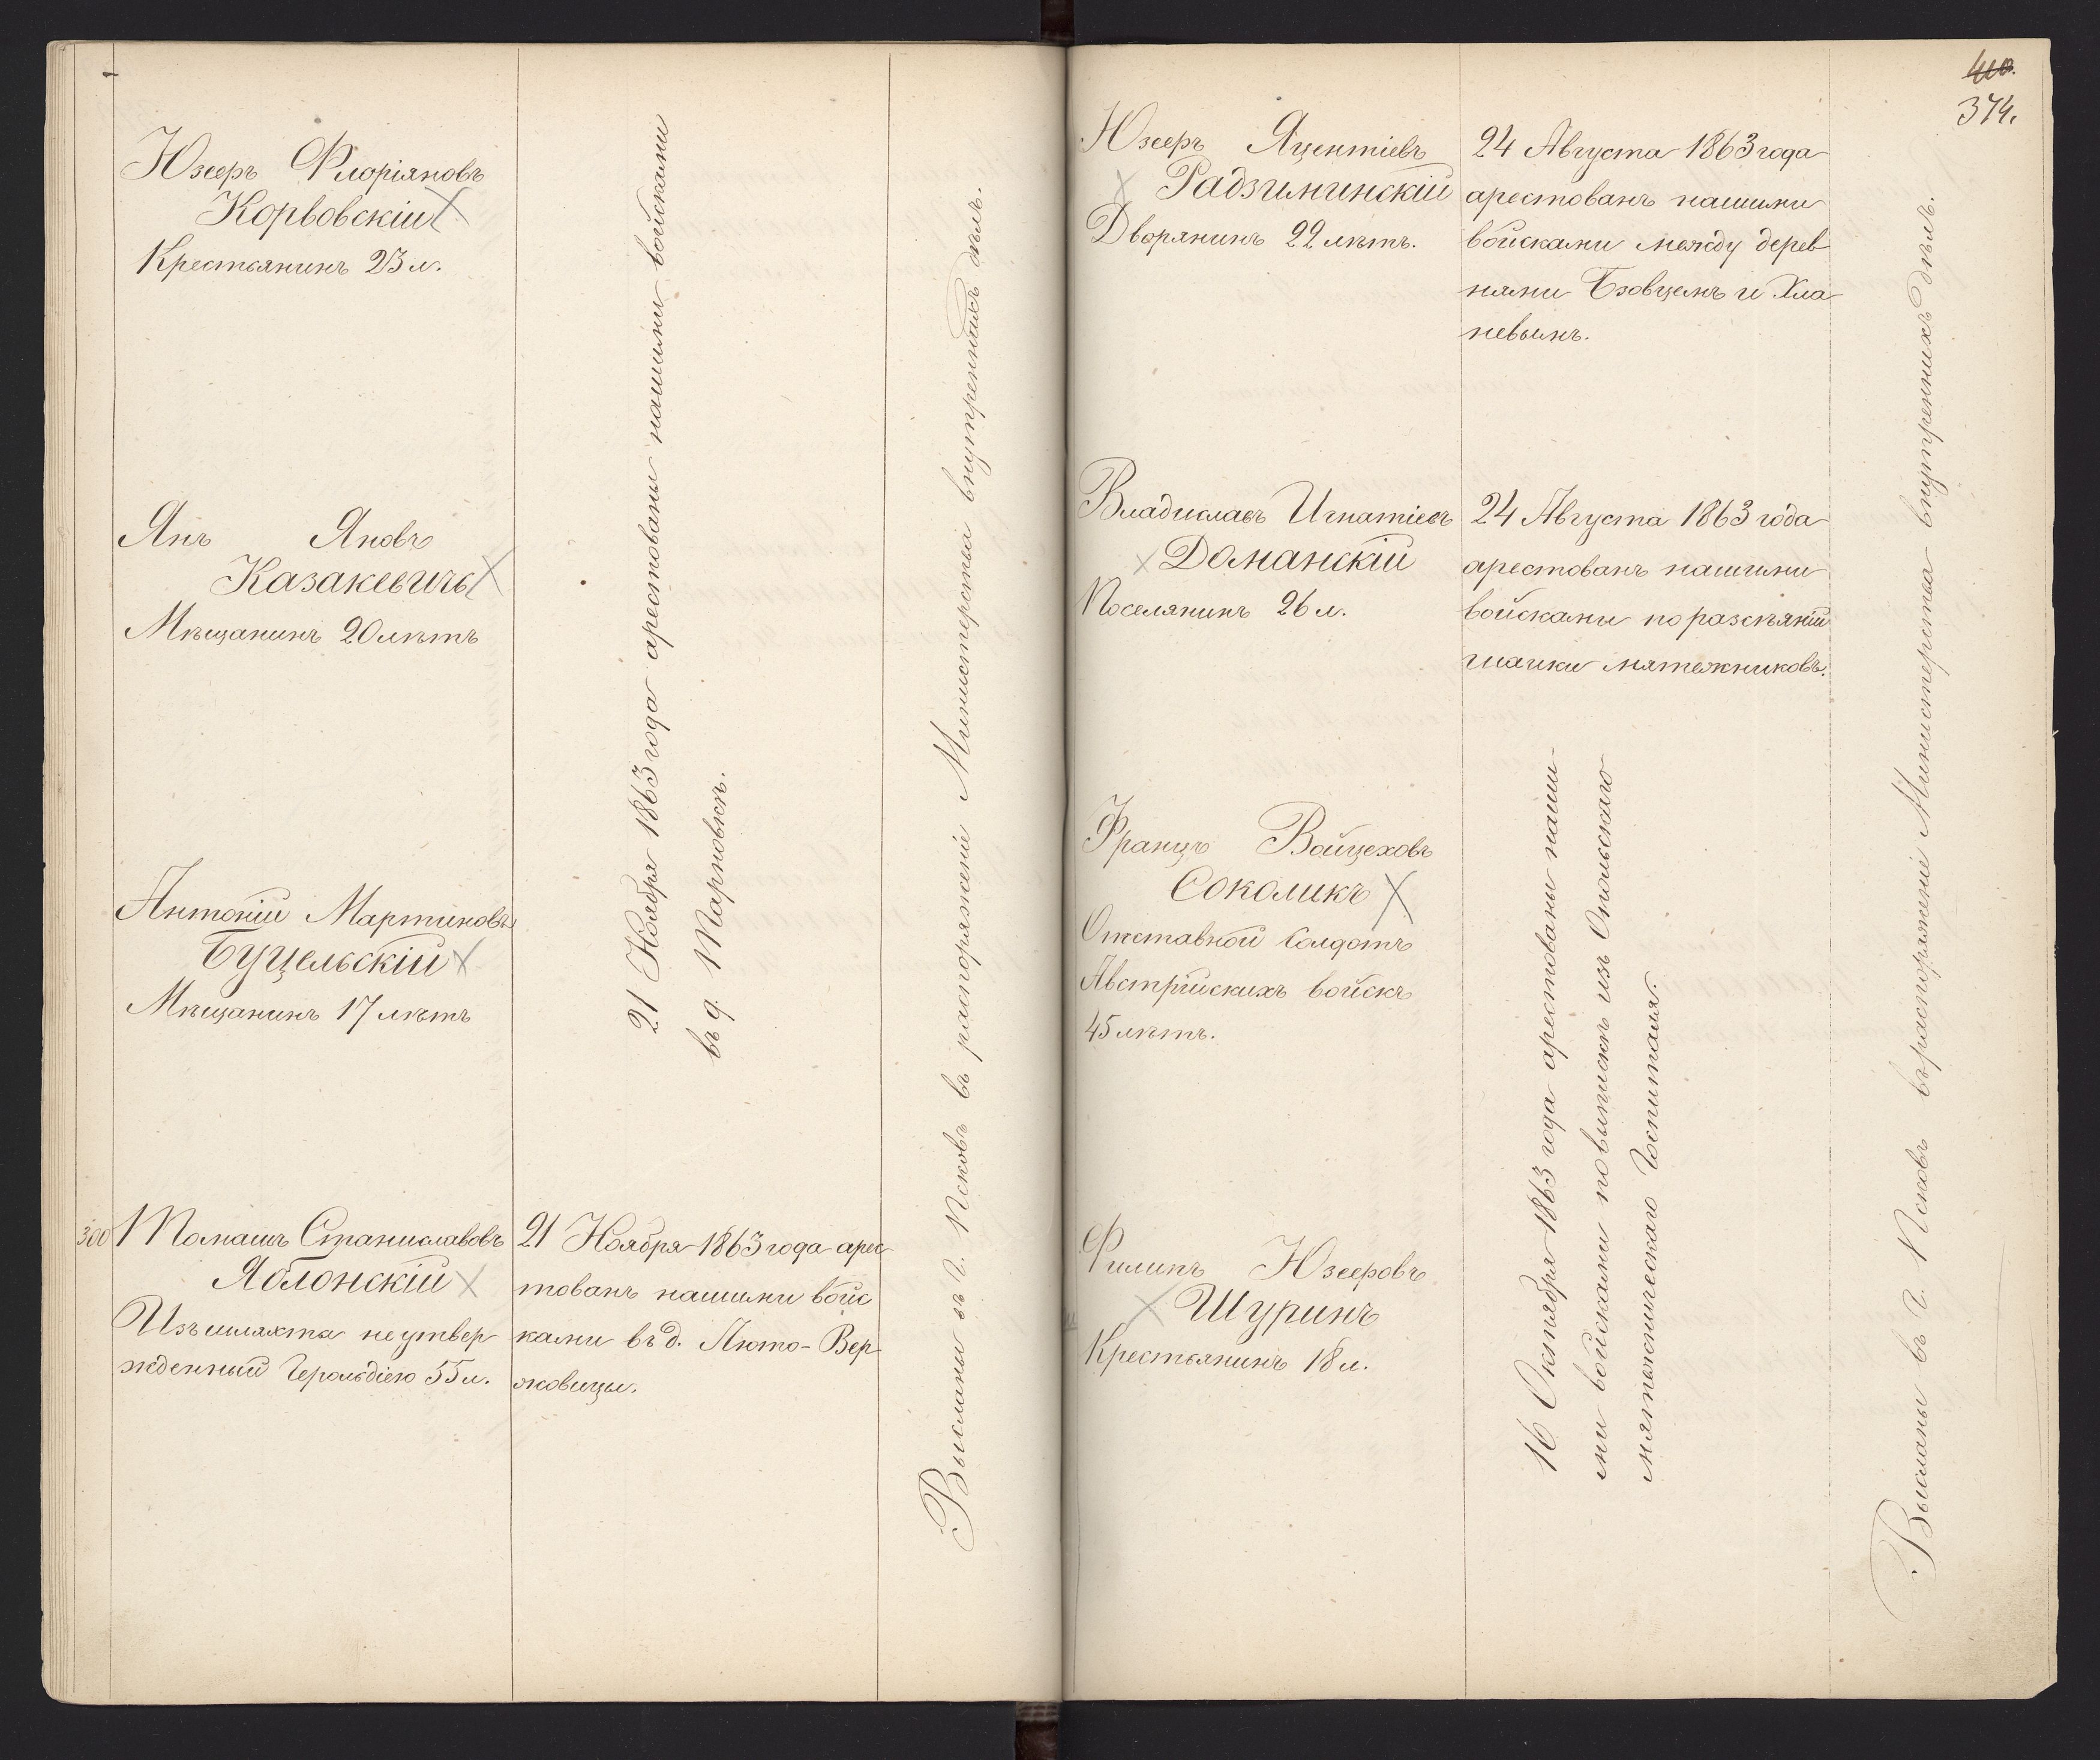 Юзефъ Флоріяновъ
Корвовскій
Крестьянинъ 23 л.
Янъ Яновъ
Казакевичъ
Мѣщанинъ 20 лѣтъ
Антоній Мартиновъ
Буцельскій
Мѣщанинъ 17 лѣтъ
21 Ноября 1863 года арестованы нашими войсками
въ д. Тарновкѣ.
300
Томашъ Станиславовъ
Яблонскій
Изъ шляхты не утвер
жденный Герольдіею 55 л.
21 Ноября 1863 года арес
тованъ нашими войс
ками въ д. Люто-Вер
жовицы.
Высланы въ г. Псковъ въ распоряженіе Министерства внутреннихъ дѣлъ.
410.
374.
Юзефъ Яцентіевъ
Радзиминскій
Дворянинъ 22 лѣтъ.
24 Августа 1863 года
арестованъ нашими
войсками между дерев
нями Бзовцемъ и Хла
невымъ.
Владиславъ Игнатіевъ
Доманскій
Поселянинъ 26 л.
24 Августа 1863 года
арестованъ нашими
войсками по разсѣяніи
шайки мятежниковъ.
Францъ Войцеховъ
Соколикъ
Отставной Солдатъ
Австрійскихъ войскъ
45 лѣтъ.
Филипъ Юзефовъ
Шуринъ
Крестьянинъ 18 л.
16 Октября 1863 года арестованы наши-
ми войсками по выпискѣ изъ Опольскаго
мятежническаго Госпиталя.
Высланы въ г. Псковъ въ распоряженіе Министерства внутреннихъ дѣлъ.